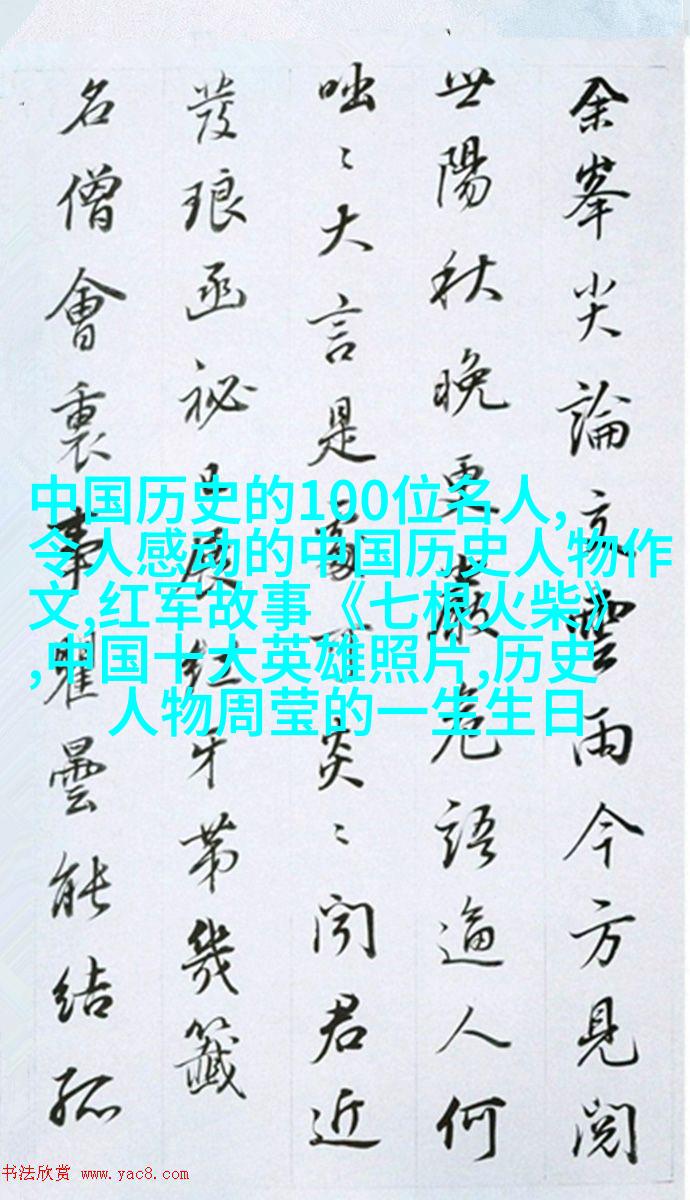 余峯尖論雲雨今方見閱
世陽秋晚更巖危語逼人何
咄〻大言是炎〻闻君近
發琅函祕展紅牙第幾籤
名僧會裏事瞿曇能結孤
中国历史的100位名人,
令人感动的中国历史人物作
文,红军故事《七根火柴》
,中国十大英雄照片,历史
人物周莹的一生生日
书法欣赏 www.yac8.com